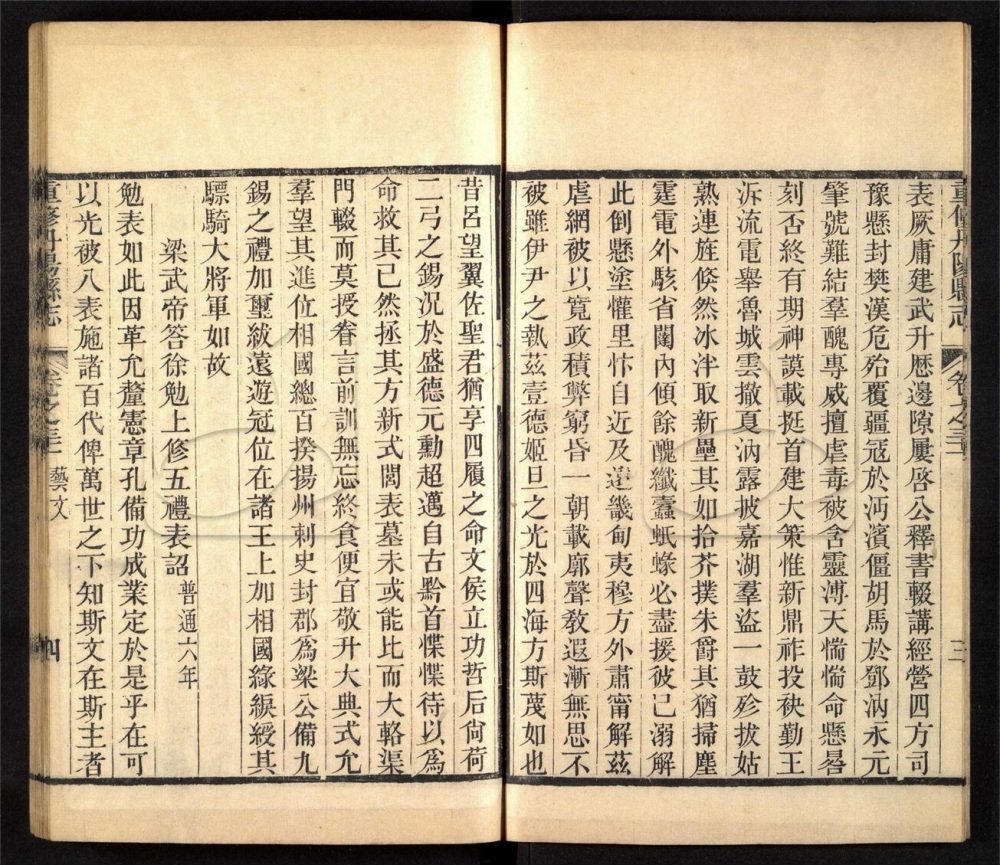 重修丹陽縣志 卷之三十 三
表厥庸建武升歷邊隙屢啓公釋書輟講經營四方司
豫懸封樊漢危殆覆疆寇於沔濱僵胡馬於鄧汭永元
肇號難結羣醜專威擅虐毒被含靈溥天惴惴命懸晷
刻否終有期神謨載挺首建大策惟新鼎祚投袂勤王
泝流電舉魯城雲撤夏汭露披嘉湖羣盜一鼓殄拔姑
熟連旌倏然冰泮取新壘其如拾芥撲朱爵其猶掃塵
霆電外駭省闥內傾餘醜纖蠧蚳蟓必盡援彼已溺解
此倒懸塗懽里忭自近及遠畿甸夷穆方外肅甯解茲
虐網被以寬政積弊窮昏一朝載廓聲敎遐漸無思不
被雖伊尹之執茲壹德姬旦之光於四海方斯蔑如也
昔呂望翼佐聖君猶享四履之命文侯立功哲后尙荷
二弓之錫況於盛德元勳超邁自古黔首惵惵待以爲
命救其已然拯其方新式閭表墓未或能比而大輅渠
門輟而莫授眷言前訓無忘終食便宜敬升大典式允
羣望其進位相國總百揆揚州刺史封郡爲梁公備九
錫之禮加璽紱遠遊冠位在諸王上加相國綠綟綬其
驃騎大將軍如故
梁武帝答徐勉上修五禮表詔 普通六年
勉表如此因革允釐憲章孔備功成業定於是乎在可
以光被八表施諸百代俾萬世之下知斯文在斯主者
重修丹陽縣志 卷之三 藝文 四